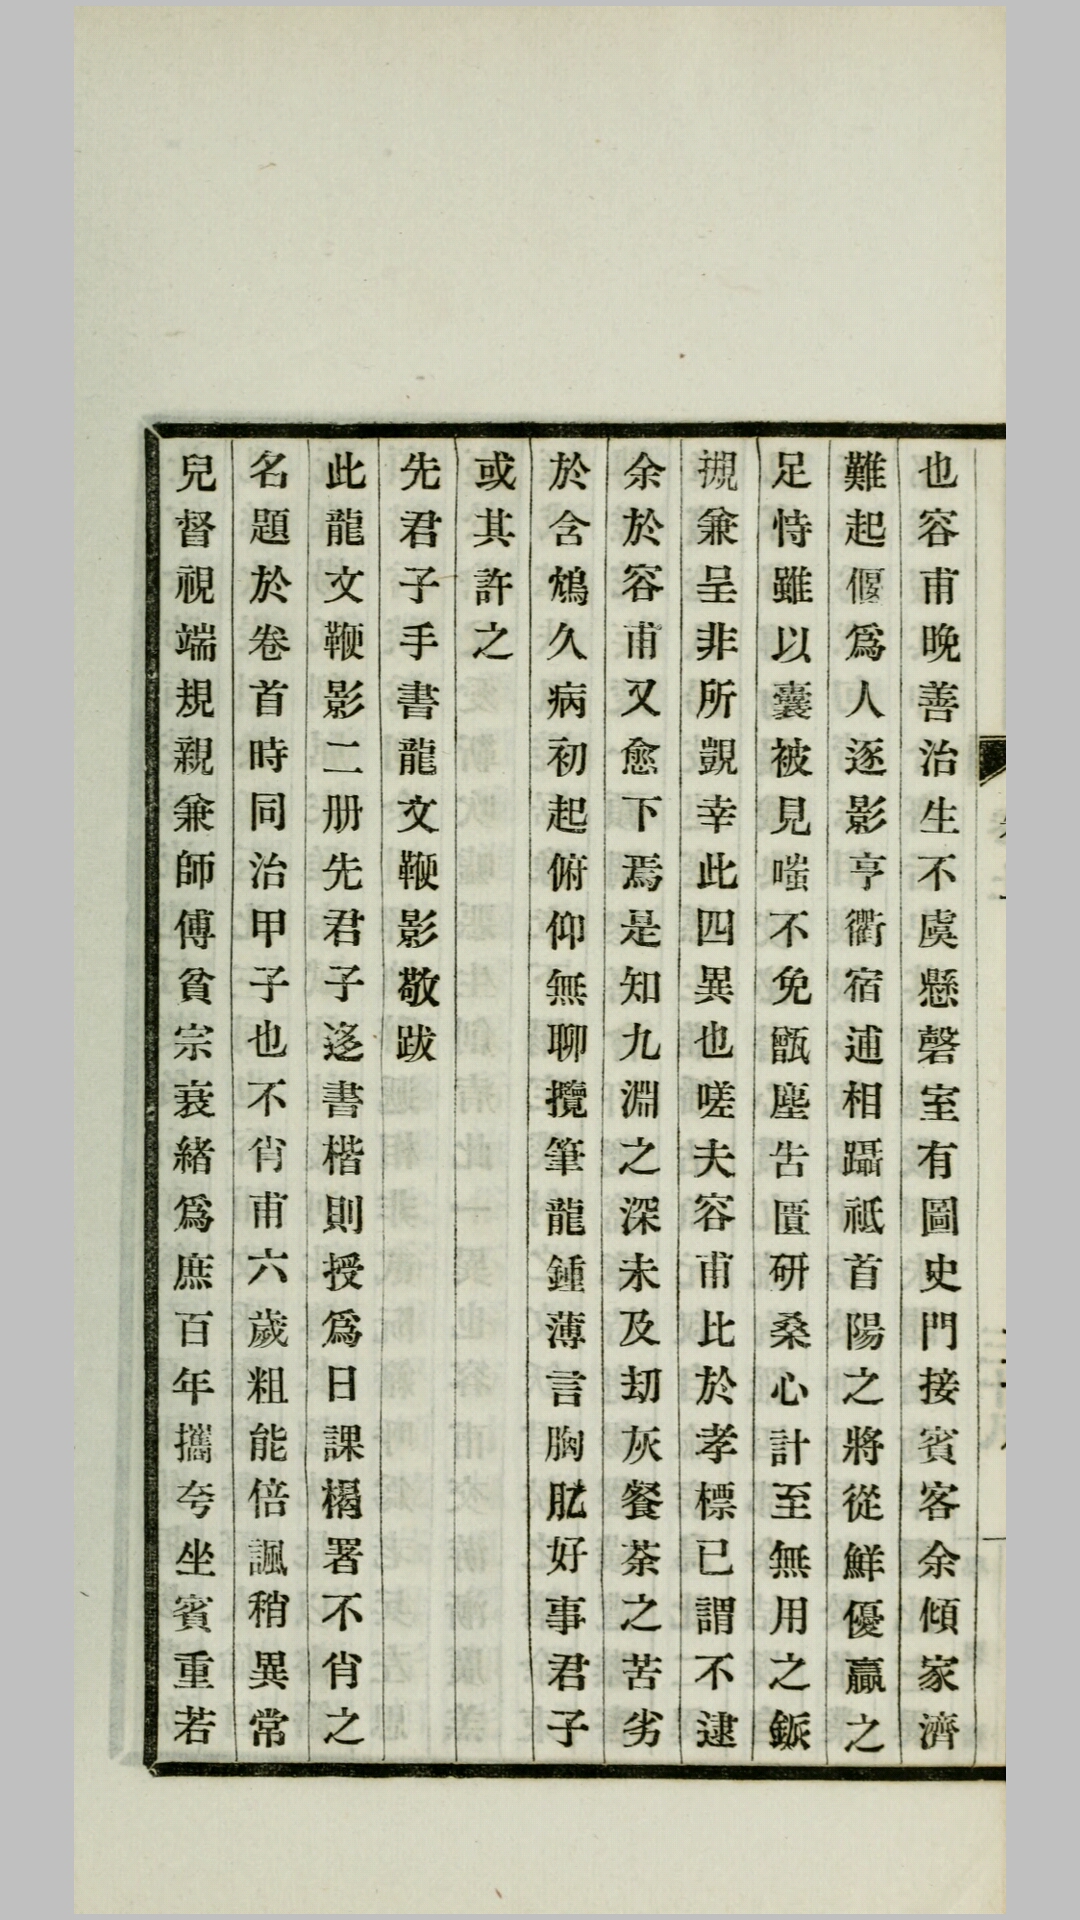 也容甫晚善治生不虞懸磬室有圖史門接賓客余傾家濟
難起偃爲人逐影亨衢宿逋相躡祗首陽之將從鮮優贏之
足恃雖以囊被見嗤不免甑塵告匱研桑心計至無用之鈲
摫兼呈非所覬幸此四異也嗟夫容甫比於孝標已謂不逮
余於容甫又愈下焉是知九淵之深未及劫灰餐荼之苦劣
於含鴆久病初起俯仰無聊攬筆龍鍾薄言胸肊好事君子
或其許之
先君子手書龍文鞭影敬跋
此龍文鞭影二册先君子迻書楷則授爲日課楬署不肖之
名題於卷首時同治甲子也不肖甫六歲粗能倍諷稍異常
兒督視端規親兼師傅貧宗衰緒爲庶百年攜夸坐賓重若